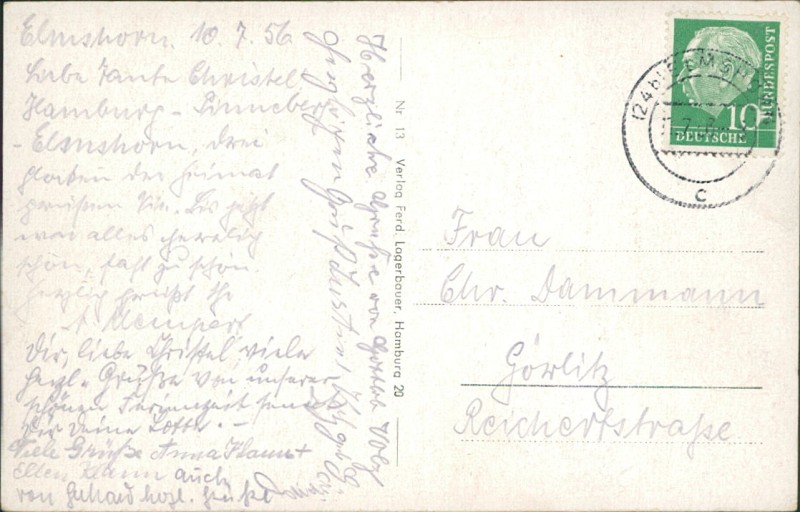 Elmshorn. 10.7.56
Liebe Tante Christel
Hamburg - Pinneberg
- Elmshorn, drei
glocken der Heimat
grüßen Sie. Bis jetzt
war alles herrlich
schön, fast zu schön.
herzlich grüßt Ihr
Dir, liebe Christel, viele
herzl. Grüße von unserer
schönen Ferienzeit sendet
Dir Deine Lotte. -
Viele Grüße Anna +
Ellen auch
von Gerhard herzl. Grüße
Herzliche Grüße von
Nr 13 Verlag Ferd. Lagerbauer, Hamburg 20
10
DEUTSCHE
BUNDESPOST
(24b) ELMSHORN
c
Frau
Chr. Dammann
Görlitz
Reichertstraße